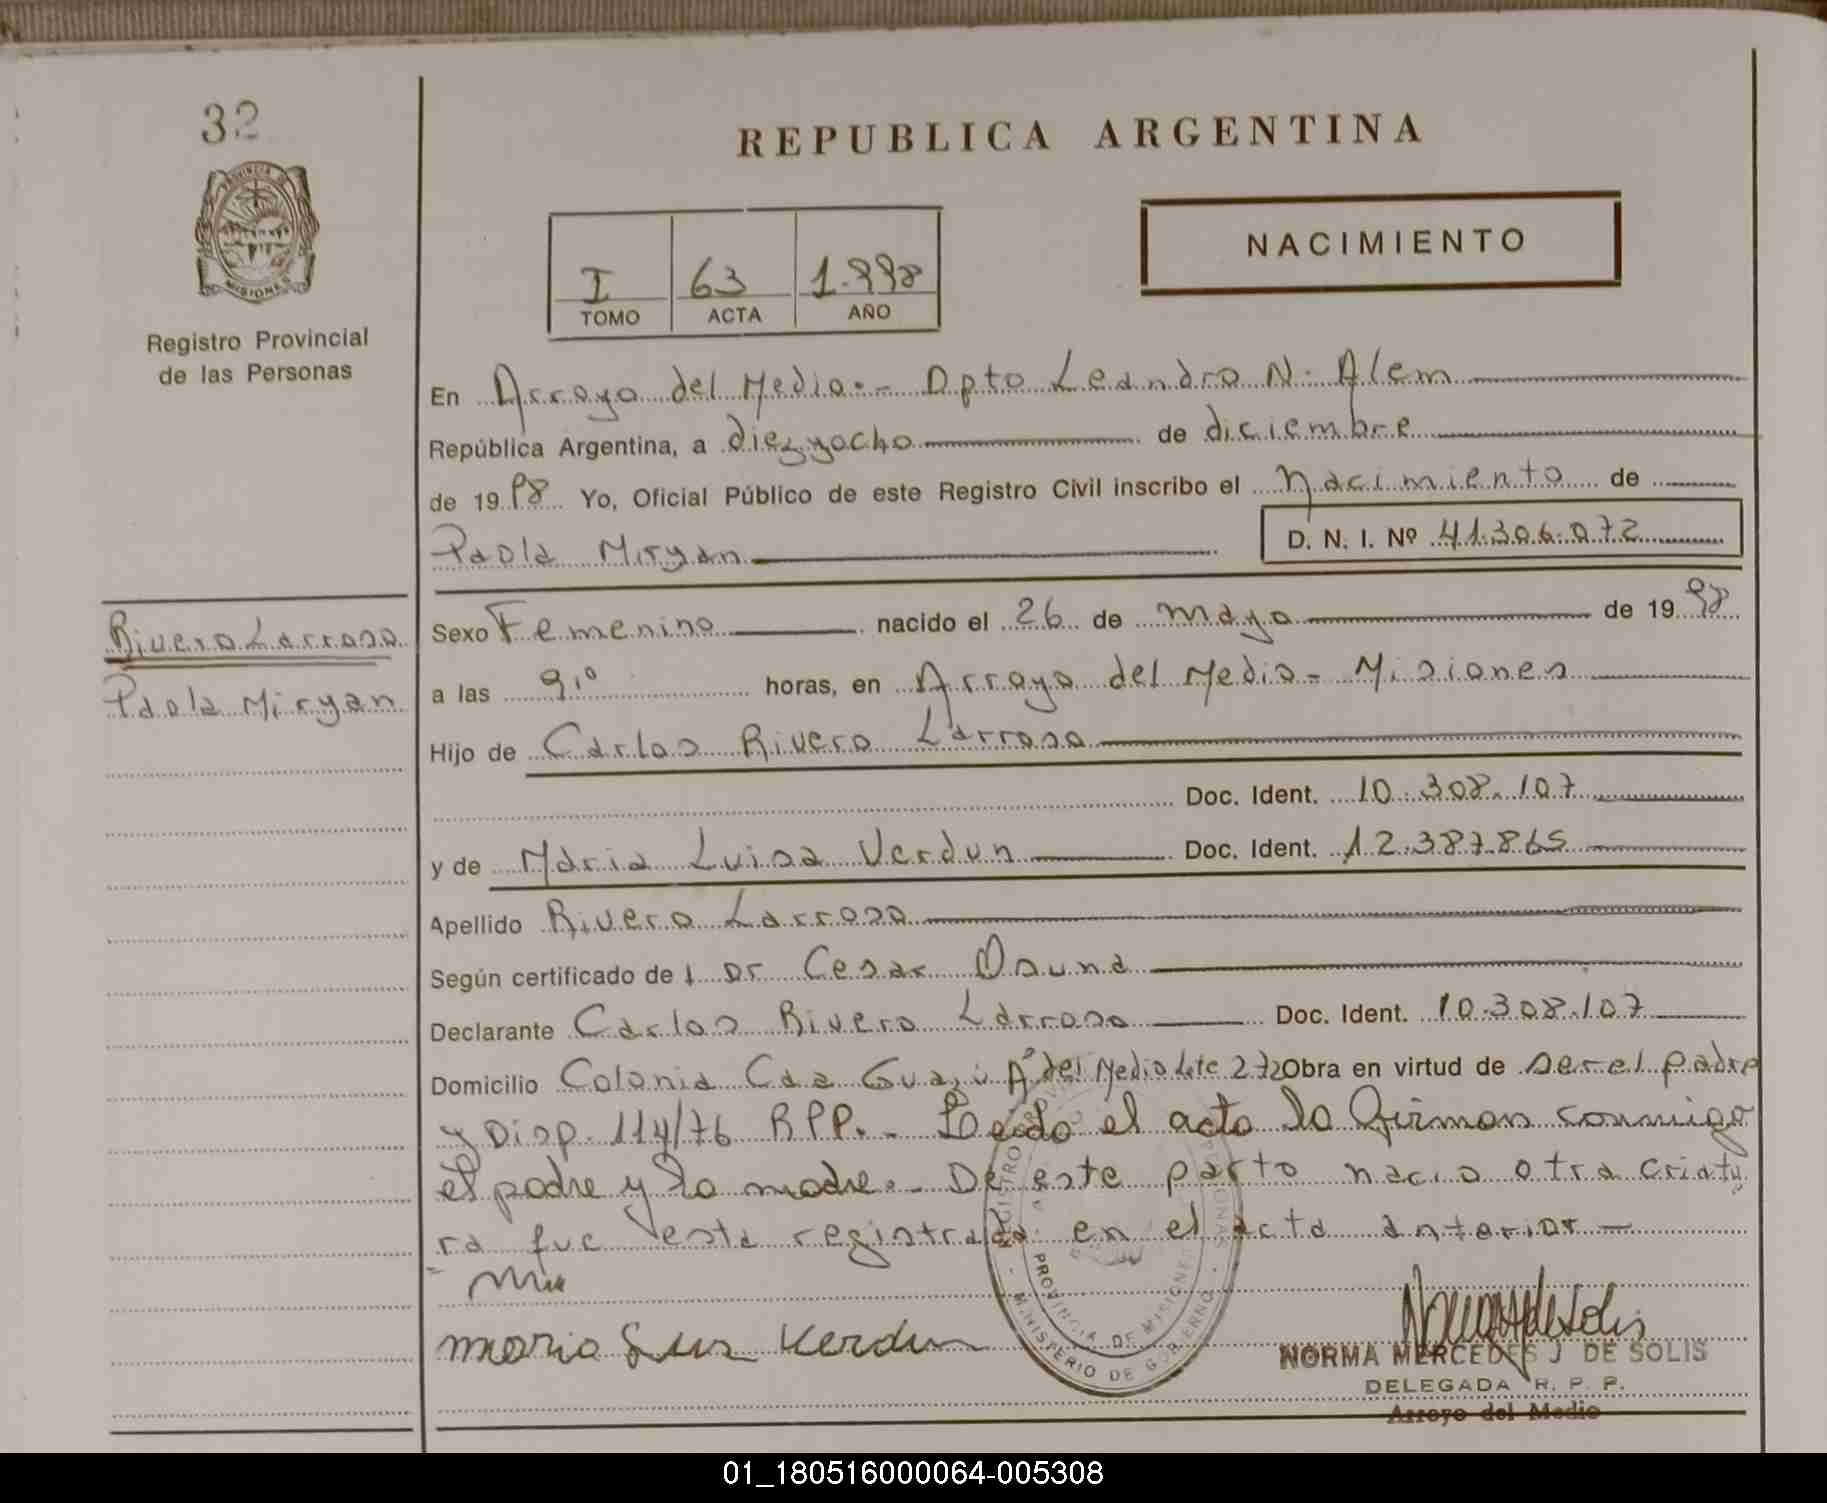 32
PROVINCIA DE
MISIONES
Registro Provincial
de las Personas
Rivero Larroso
Paola Miryan
REPUBLICA ARGENTINA
NACIMIENTO
I 63 1.998
TOMO ACTA AÑO
En Arroyo del Medio.- Dpto Leandro N. Alem
República Argentina, a diezyocho de diciembre
de 1998 Yo, Oficial Público de este Registro Civil inscribo el Nacimiento de
Paola Miryan D. N. I. Nº 41.306.072
Sexo Femenino nacido el 26 de mayo de 1998
a las 9,º horas, en Arroyo del Medio - Misiones
Hijo de Carlos Rivero Larroso
Doc. Ident. 10.308.107
y de Maria Luisa Verdun Doc. Ident. 12.387.865
Apellido Rivero Larroso
Según certificado de : Dr Cesar Osuna
Declarante Carlos Rivero Larroso Doc. Ident. 10.308.107
Domicilio Colonia Caa Guazú Aº del Medio Lote 272 Obra en virtud de ser el padre
y Disp. 114/76 RPP.- Leido el acta la firman conmigo
el padre y la madre.- De este parto nacio otra criatu
ra fue esta registrada en el acta anterior
maria Luis Verdun
PROVINCIA DE MISIONES
MINISTERIO DE GOBIERNO
NORMA MERCEDES J DE SOLIS
DELEGADA R. P. P.
Arroyo del Medio
01_180516000064-005308